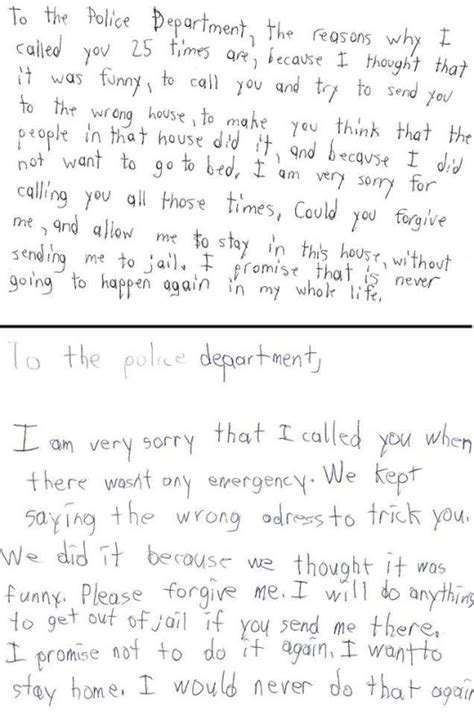 To the Police Department, the reasons why I
called you 25 times are, because I thought that
it was funny, to call you and try to send you
to the wrong house, to make you think that the
people in that house did it, and because I did
not want to go to bed. I am very sorry for
calling you all those times, Could you forgive
me, and allow me to stay in this house, without
sending me to jail. I promise that is never
going to happen again in my whole life.
To the police department,
I am very sorry that I called you when
there wasn't any emergency. We kept
saying the wrong adress to trick you.
We did it because we thought it was
funny. Please forgive me. I will do anything
to get out of jail if you send me there.
I promise not to do it again. I want to
stay home. I would never do that again